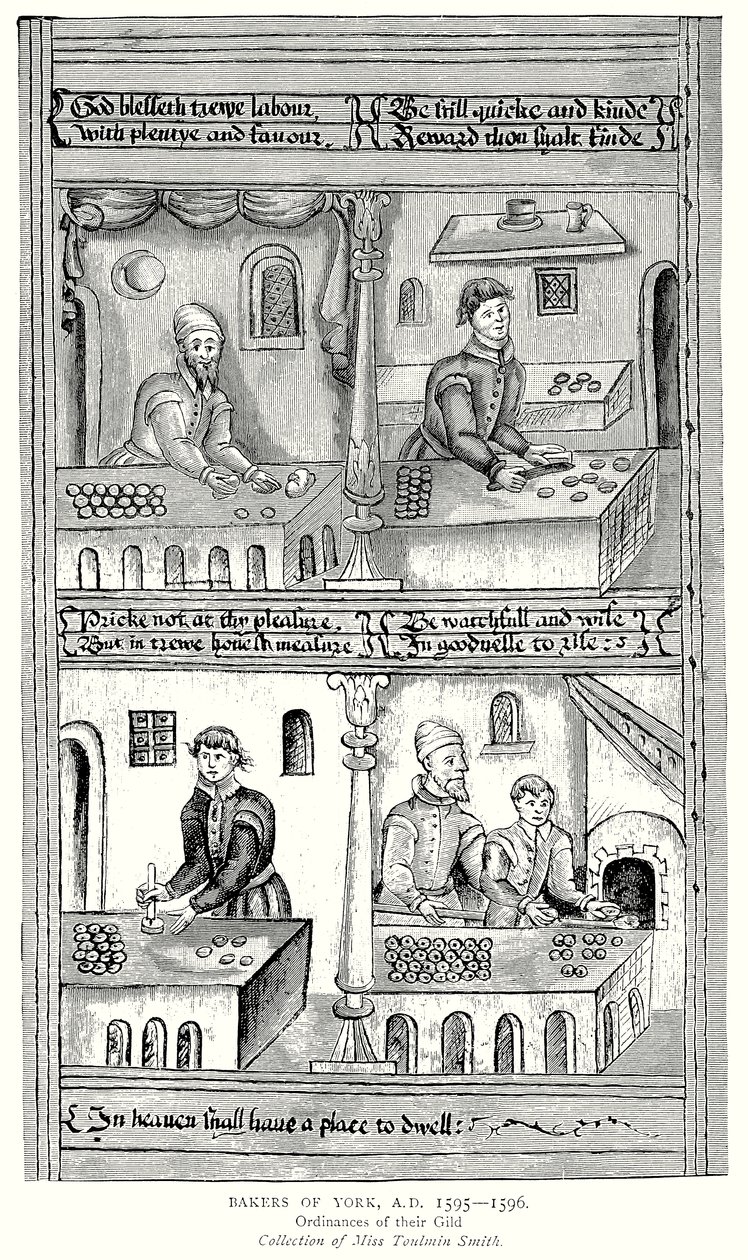 God blesseth trewe labour,
with plentye and favour.
Be still quicke and kinde
Reward thou shalt finde
Pricke not at thy pleasure,
But in trewe honest measure
Be watchfull and wise
In goodnesse to rise :
In heaven shall have a place to dwell :
BAKERS OF YORK, A.D. 1595—1596.
Ordinances of their Gild
Collection of Miss Toulmin Smith.